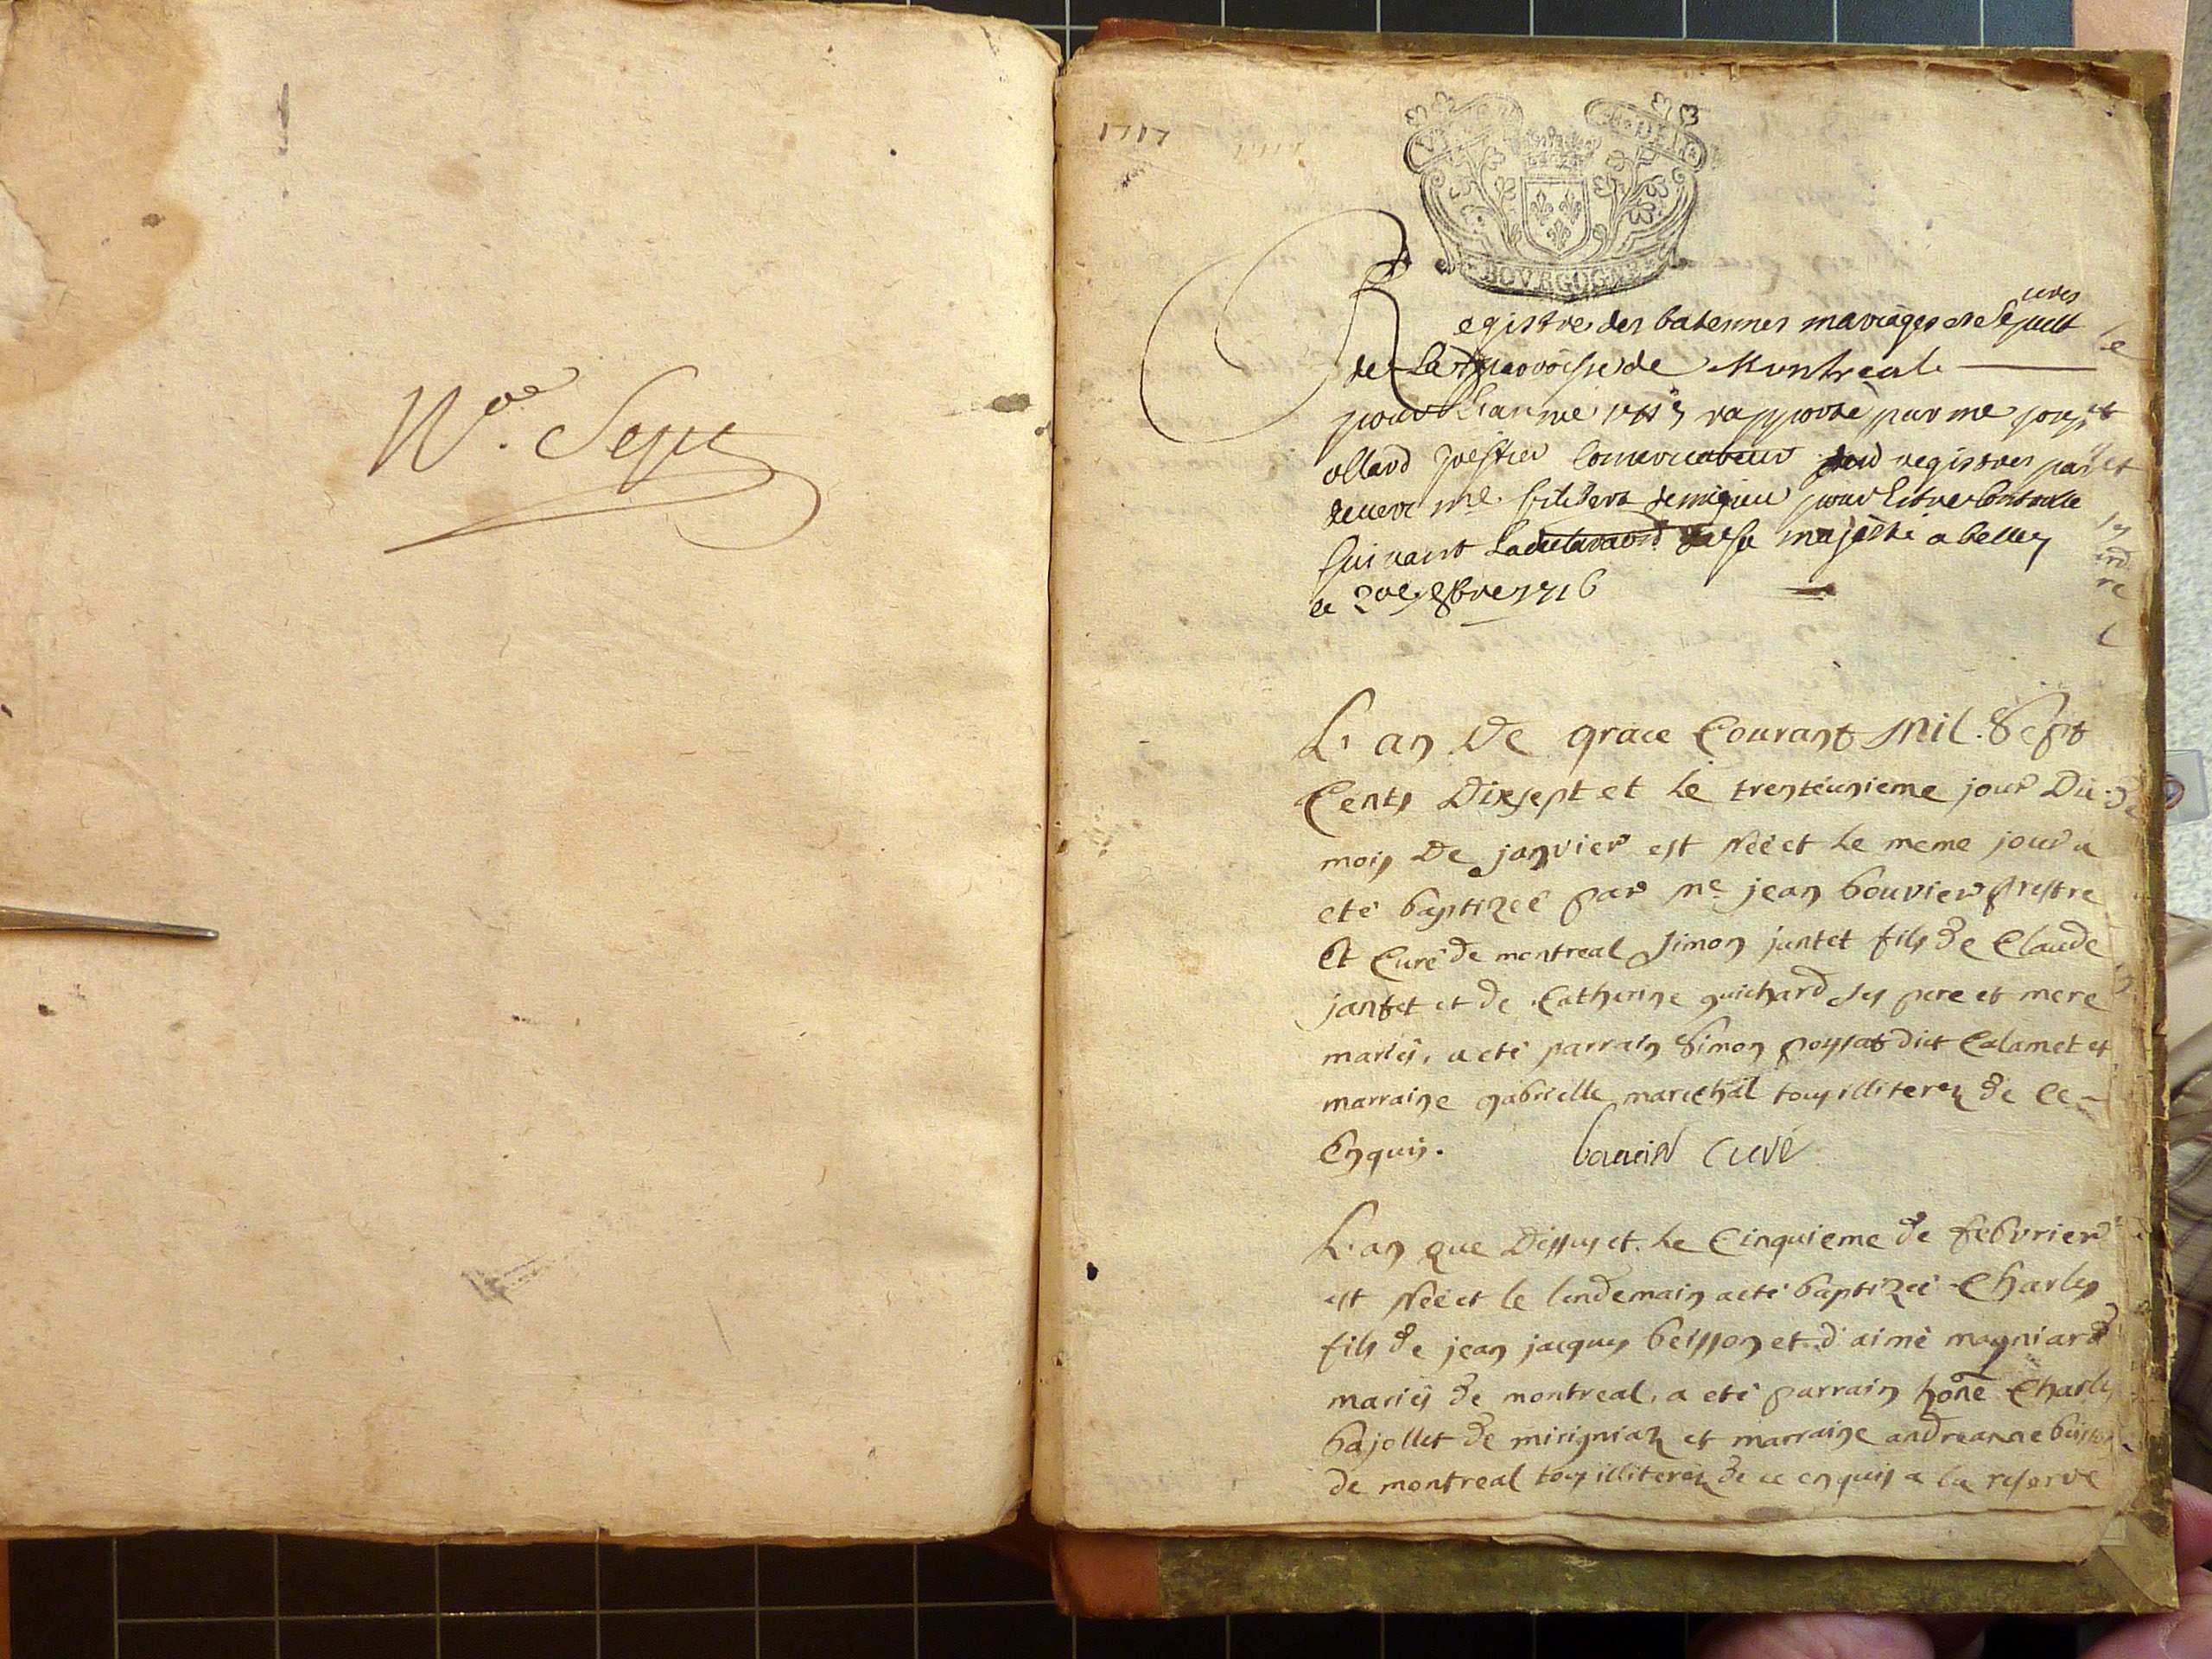 Noe. Sept
1717
BOVRGOGNE
Registre des batesmes mariages et Sepult
ures
de La parroisse de Montreal
pour Lannee 1717 rapporté par me
ollard
devers me. pour Estre Controlle
suivant La declaration de Sa majesté a belley
le 20e 8bre 1716
L'an De grace Courant Mil. Sept
Cents Dixsept et le trenteunieme jour Du
mois De janvier est Néé et le meme jour a
eté baptizéé par me jean bouvier prestre
Et Curé de montreal Simon jantet fils de Claude
jantet et de Catherine guichard ses pere et mere
mariés, a eté parrain Simon poysat dit Calamet et
marraine gabrielle marechal tous illiterez de ce
Enquis. bouvier curé
L'an que Dessus et le Cinquieme de febvrier
est Néé et le lendemain a eté baptizéé Charles
fils de jean jacques beisson et d'aimé magniard
mariés de montreal, a eté parrain hone Charles
bajollet de mirigniaz et marraine andreanne
de montreal tous illiterez de ce enquis a la reserve